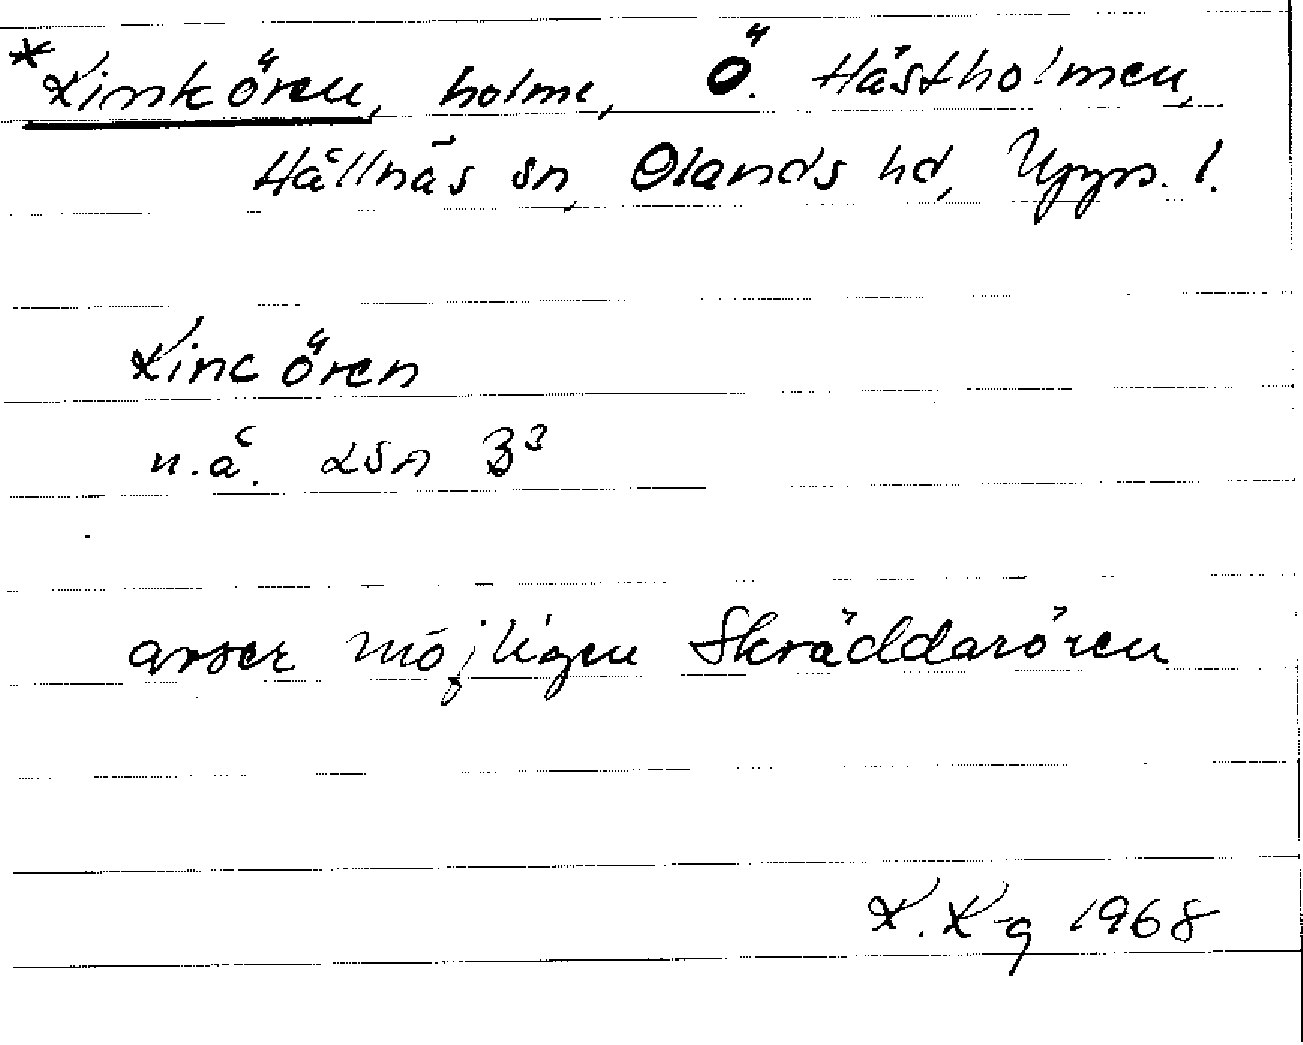 *Kinkören, holme, Ö. Hästholmen,
Hållnäs sn, Olands hd, Uppl.
Kinc ören
n.å. LSA B3
avser möjligen Skräddarören
K. K-g 1968